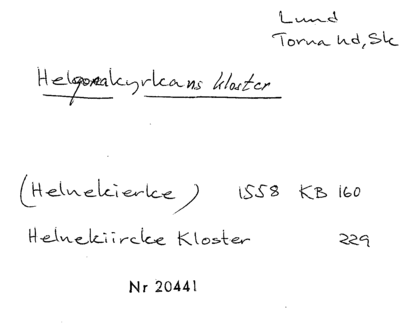 Lund
Torna hd, Sk
Helgonakyrkans kloster
(Helnekierke) 1558 KB 160
Helnekiircke Kloster 229
Nr 20441